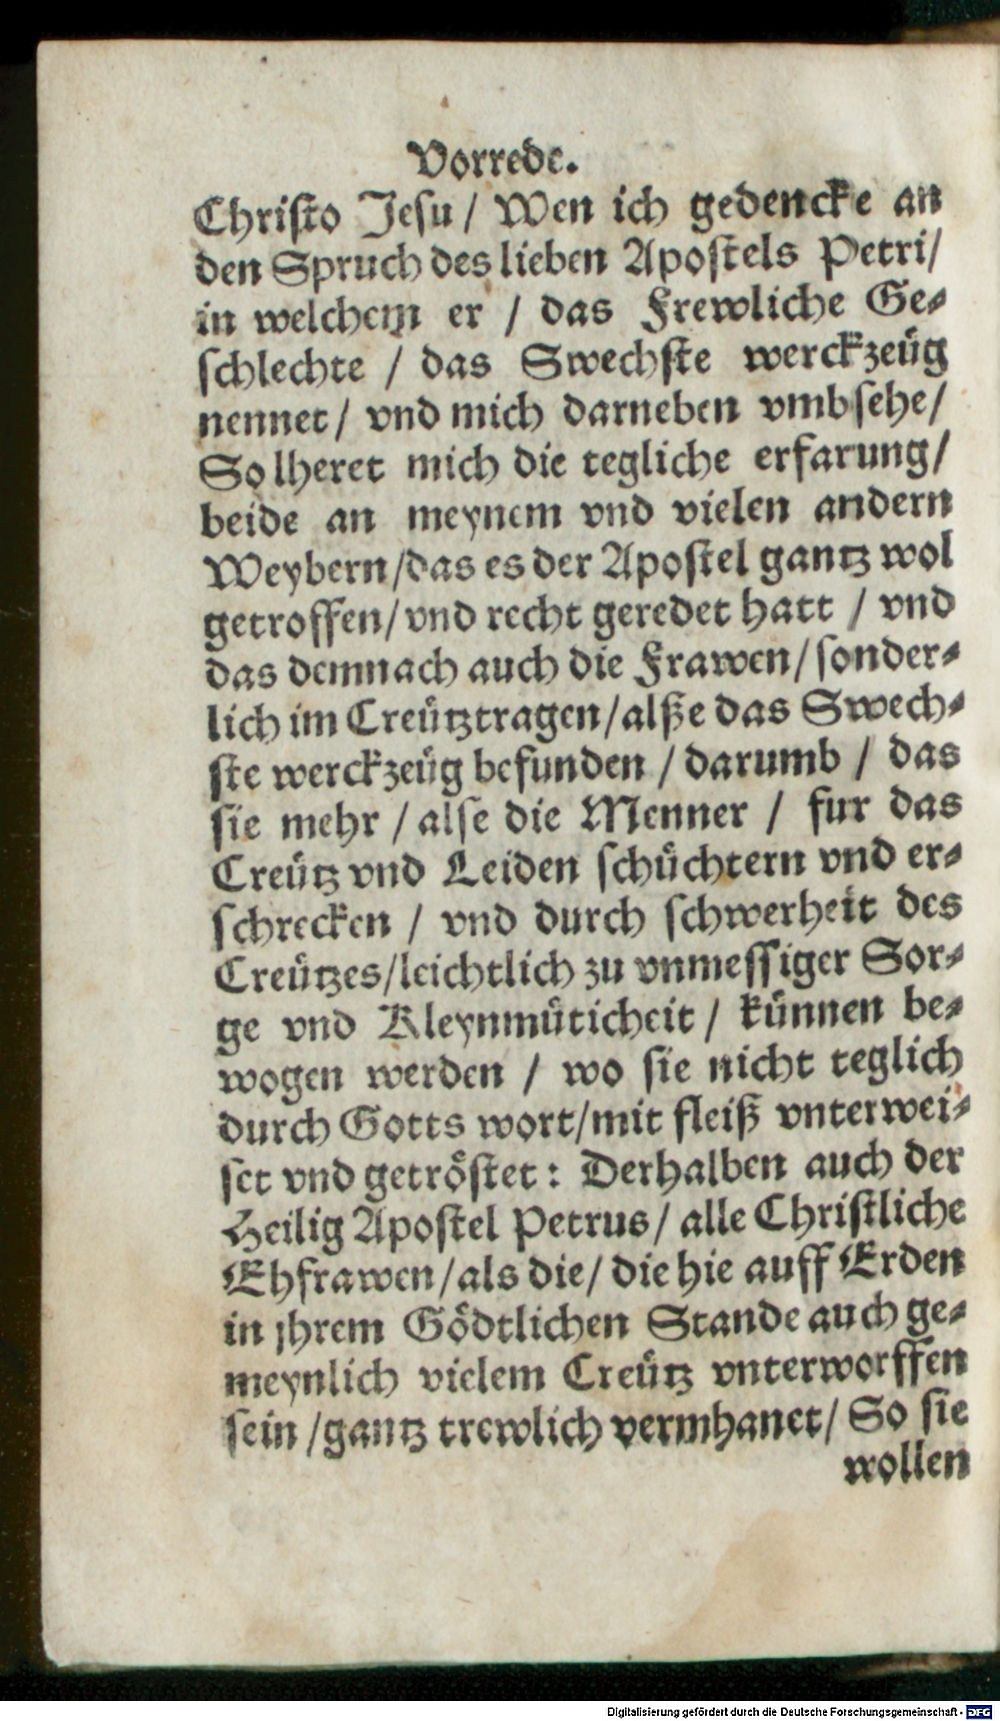 Vorrede.
Christo Jesu / Wen ich gedencke an
den Spruch des lieben Apostels Petri/
in welchem er / das Frewliche Ge-
schlechte / das Swechste werckzeüg
nennet / vnd mich darneben vmbsehe/
So lheret mich die tegliche erfarung/
beide an meynem vnd vielen andern
Weybern/das es der Apostel gantz wol
getroffen/vnd recht geredet hatt / vnd
das demnach auch die Frawen/sonder-
lich im Creütztragen/alße das Swech-
ste werckzeüg befunden / darumb / das
sie mehr / alse die Menner / fur das
Creütz vnd Leiden schüchtern vnd er-
schrecken / vnd durch schwerheit des
Creützes/leichtlich zu vnmessiger Sor-
ge vnd Kleynmüticheit / künnen be-
wogen werden / wo sie nicht teglich
durch Gotts wort/mit fleiß vnterwei-
set vnd getröstet: Derhalben auch der
Heilig Apostel Petrus/ alle Christliche
Ehfrawen/als die/ die hie auff Erden
in jhrem Gödtlichen Stande auch ge-
meynlich vielem Creütz vnterworffen
sein /gantz trewlich vermhanet/ So sie
wollen
Digitalisierung gefördert durch die Deutsche Forschungsgemeinschaft - DFG